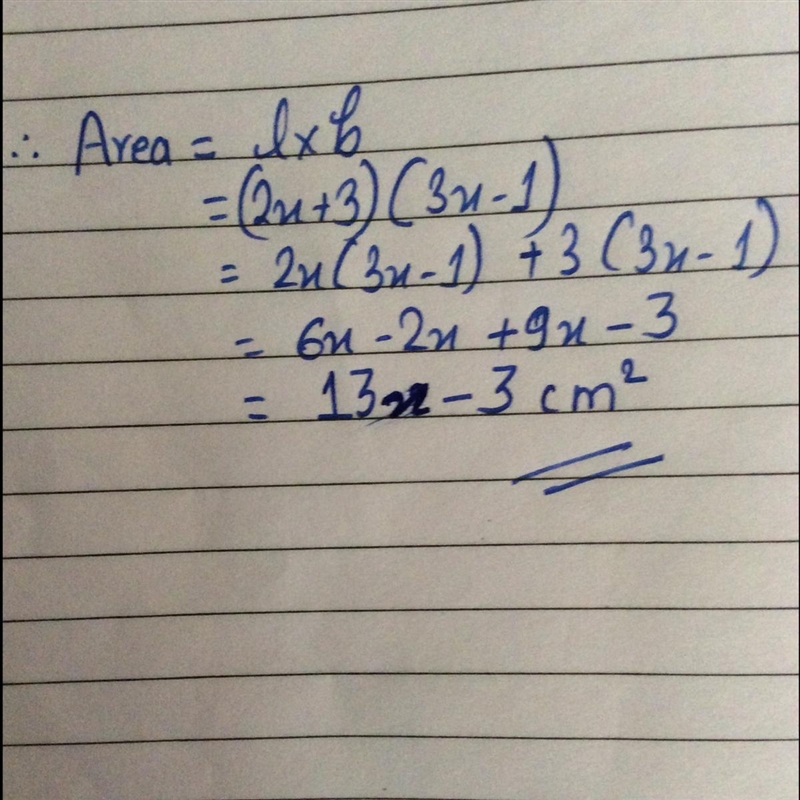 ∴ Area = l×b
= (2x+3) (3x-1)
= 2x(3x-1) + 3 (3x-1)
= 6x - 2x + 9x - 3
= 13x - 3 cm²